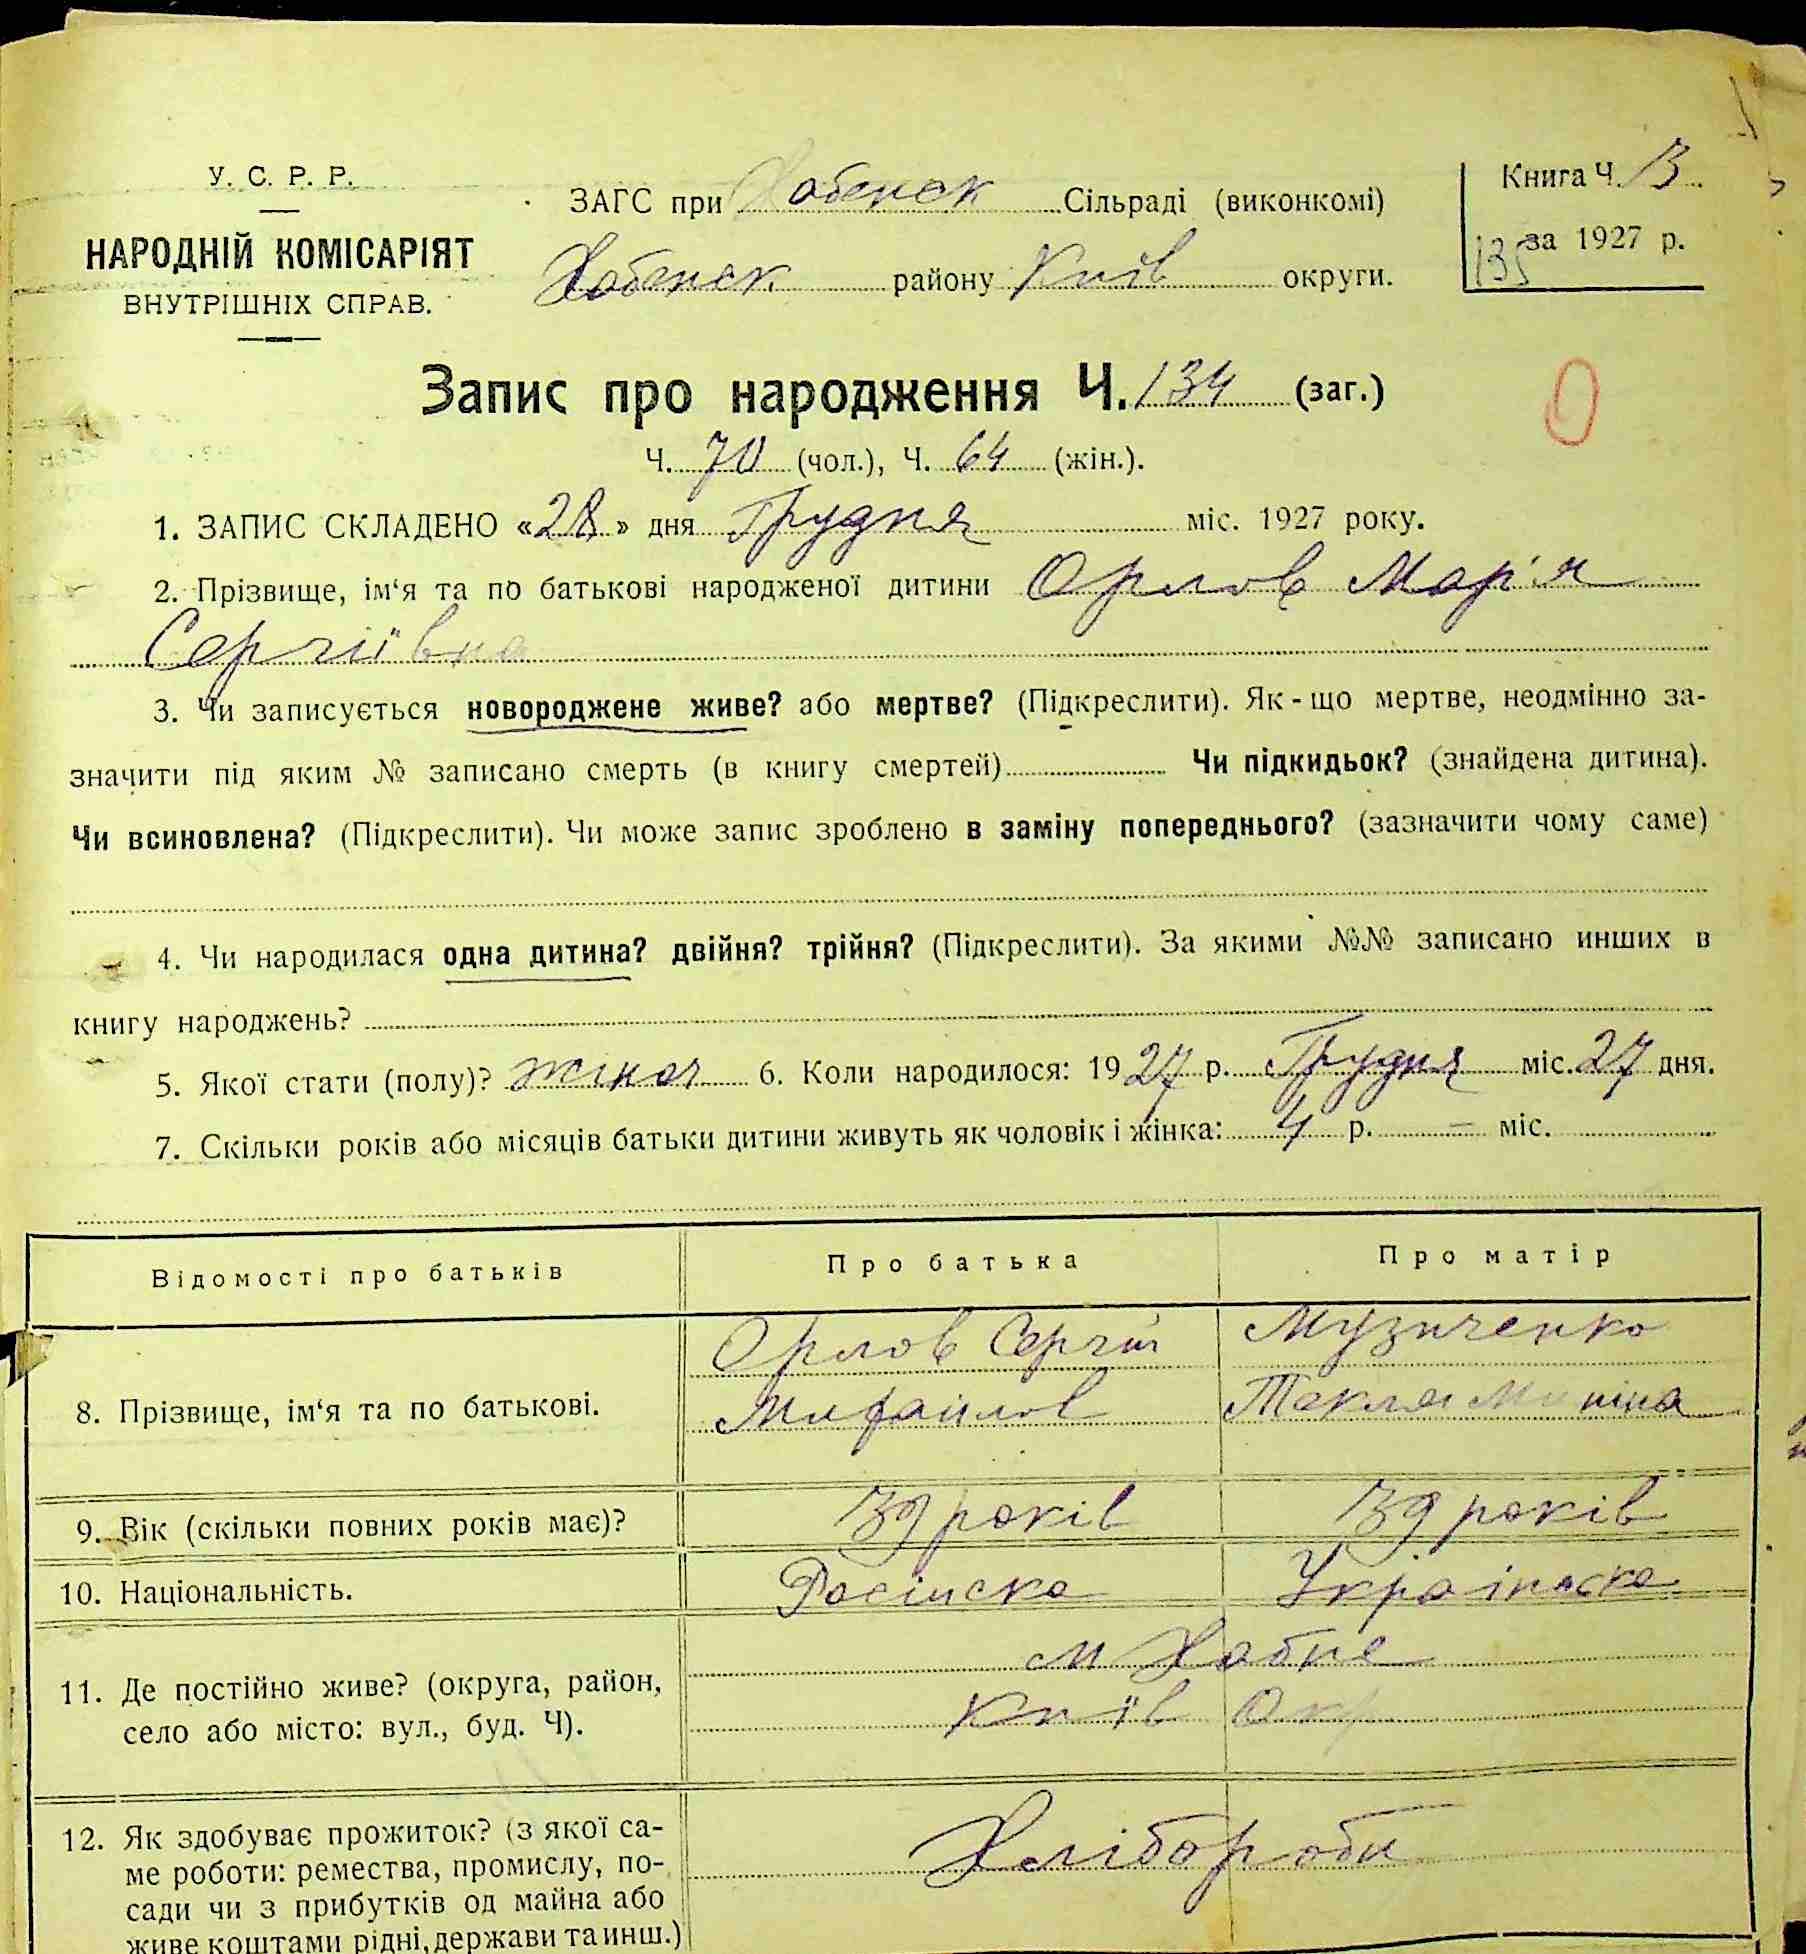 У. С. Р. Р.
НАРОДНІЙ КОМІСАРІЯТ
ВНУТРІШНІХ СПРАВ.
ЗАГС при Хабенск Сільраді (виконкомі)
Хабенск району Київ округи.
Книга Ч. 3
135 за 1927 р.
Запис про народження Ч. 134 (заг.)
Ч. 70 (чол.), Ч. 64 (жін.).
1. ЗАПИС СКЛАДЕНО «28» дня Грудня міс. 1927 року.
2. Прізвище, ім‘я та по батькові народженої дитини Орлов Мар'я
Сергіївна
3. Чи записується новороджене живе? або мертве? (Підкреслити). Як-що мертве, неодмінно за-
значити під яким № записано смерть (в книгу смертей) Чи підкидьок? (знайдена дитина).
Чи всиновлена? (Підкреслити). Чи може запис зроблено в заміну попереднього? (зазначити чому саме)
4. Чи народилася одна дитина? двійня? трійня? (Підкреслити). За якими №№ записано инших в
книгу народжень?
5. Якої стати (полу)? жіноч 6. Коли народилося: 1927 р. Грудня міс. 27 дня.
7. Скільки років або місяців батьки дитини живуть як чоловік і жінка: 4 р. – міс.
Відомості про батьків Про батька Про матір
8. Прізвище, ім‘я та по батькові.
Орлов Сергій
Михайлов
Музиченко
Текля
9. Вік (скільки повних років має)? 39 років 39 років
10. Національність. Російска Українска
11. Де постійно живе? (округа, район,
село або місто: вул., буд. Ч).
м Хабне
Київ Окр
12. Як здобуває прожиток? (з якої са-
ме роботи: ремества, промислу, по-
сади чи з прибутків од майна або
живе коштами рідні, держави та инш.)
Хлібороби